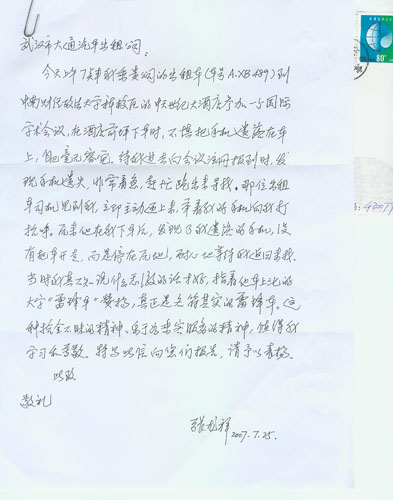 武汉市大通汽车出租公司：
今天上午7时许我乘贵公司的出租车（车号A.XB489）到
中南财经政法大学科校区的中世纪大酒店参加一与国际
学术会议，在酒店前坪下车时，不慎把手机遗落在车
上，自己毫无察觉，待我进去向会议注册报到时，发
现手机遗失，非常着急，赶忙跑出来寻找。那位出租
车司机见到我，立即主动迎上来，拿着我的手机向我打
招呼。原来他在我下车后，发现了我遗落的手机，没
有把车开走，而是停在原地，耐心地等待我返回来找。
当时我真不知说什么感激的话才好，指着他车上的
大字"雷锋车"赞扬，真正是名符其实的雷锋车。这
种拾金不昧的精神、乐于为乘客服务的精神，值得我
学习和尊敬。特写此信向您们报告，请予以表扬。
此致
敬礼
2007.7.25.
80